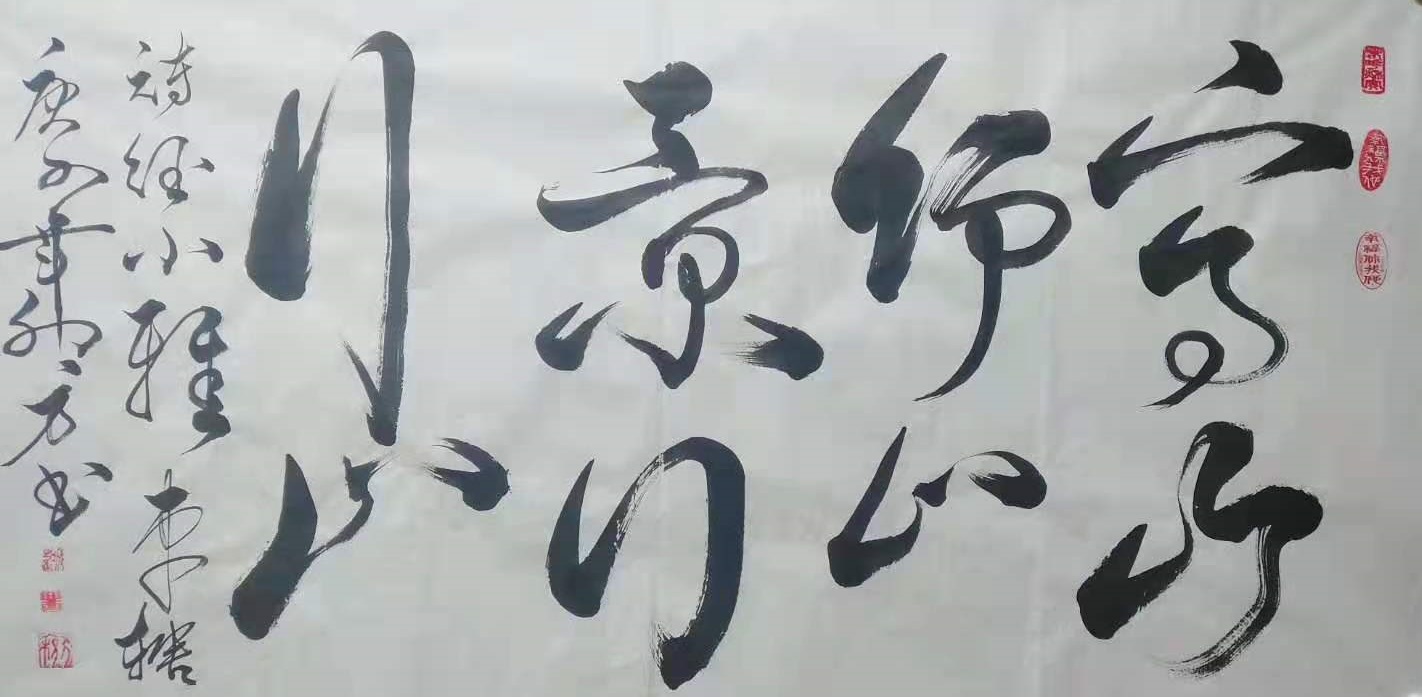 高山
仰止
景行
行止
詩經小雅車轄
庚子年 方书